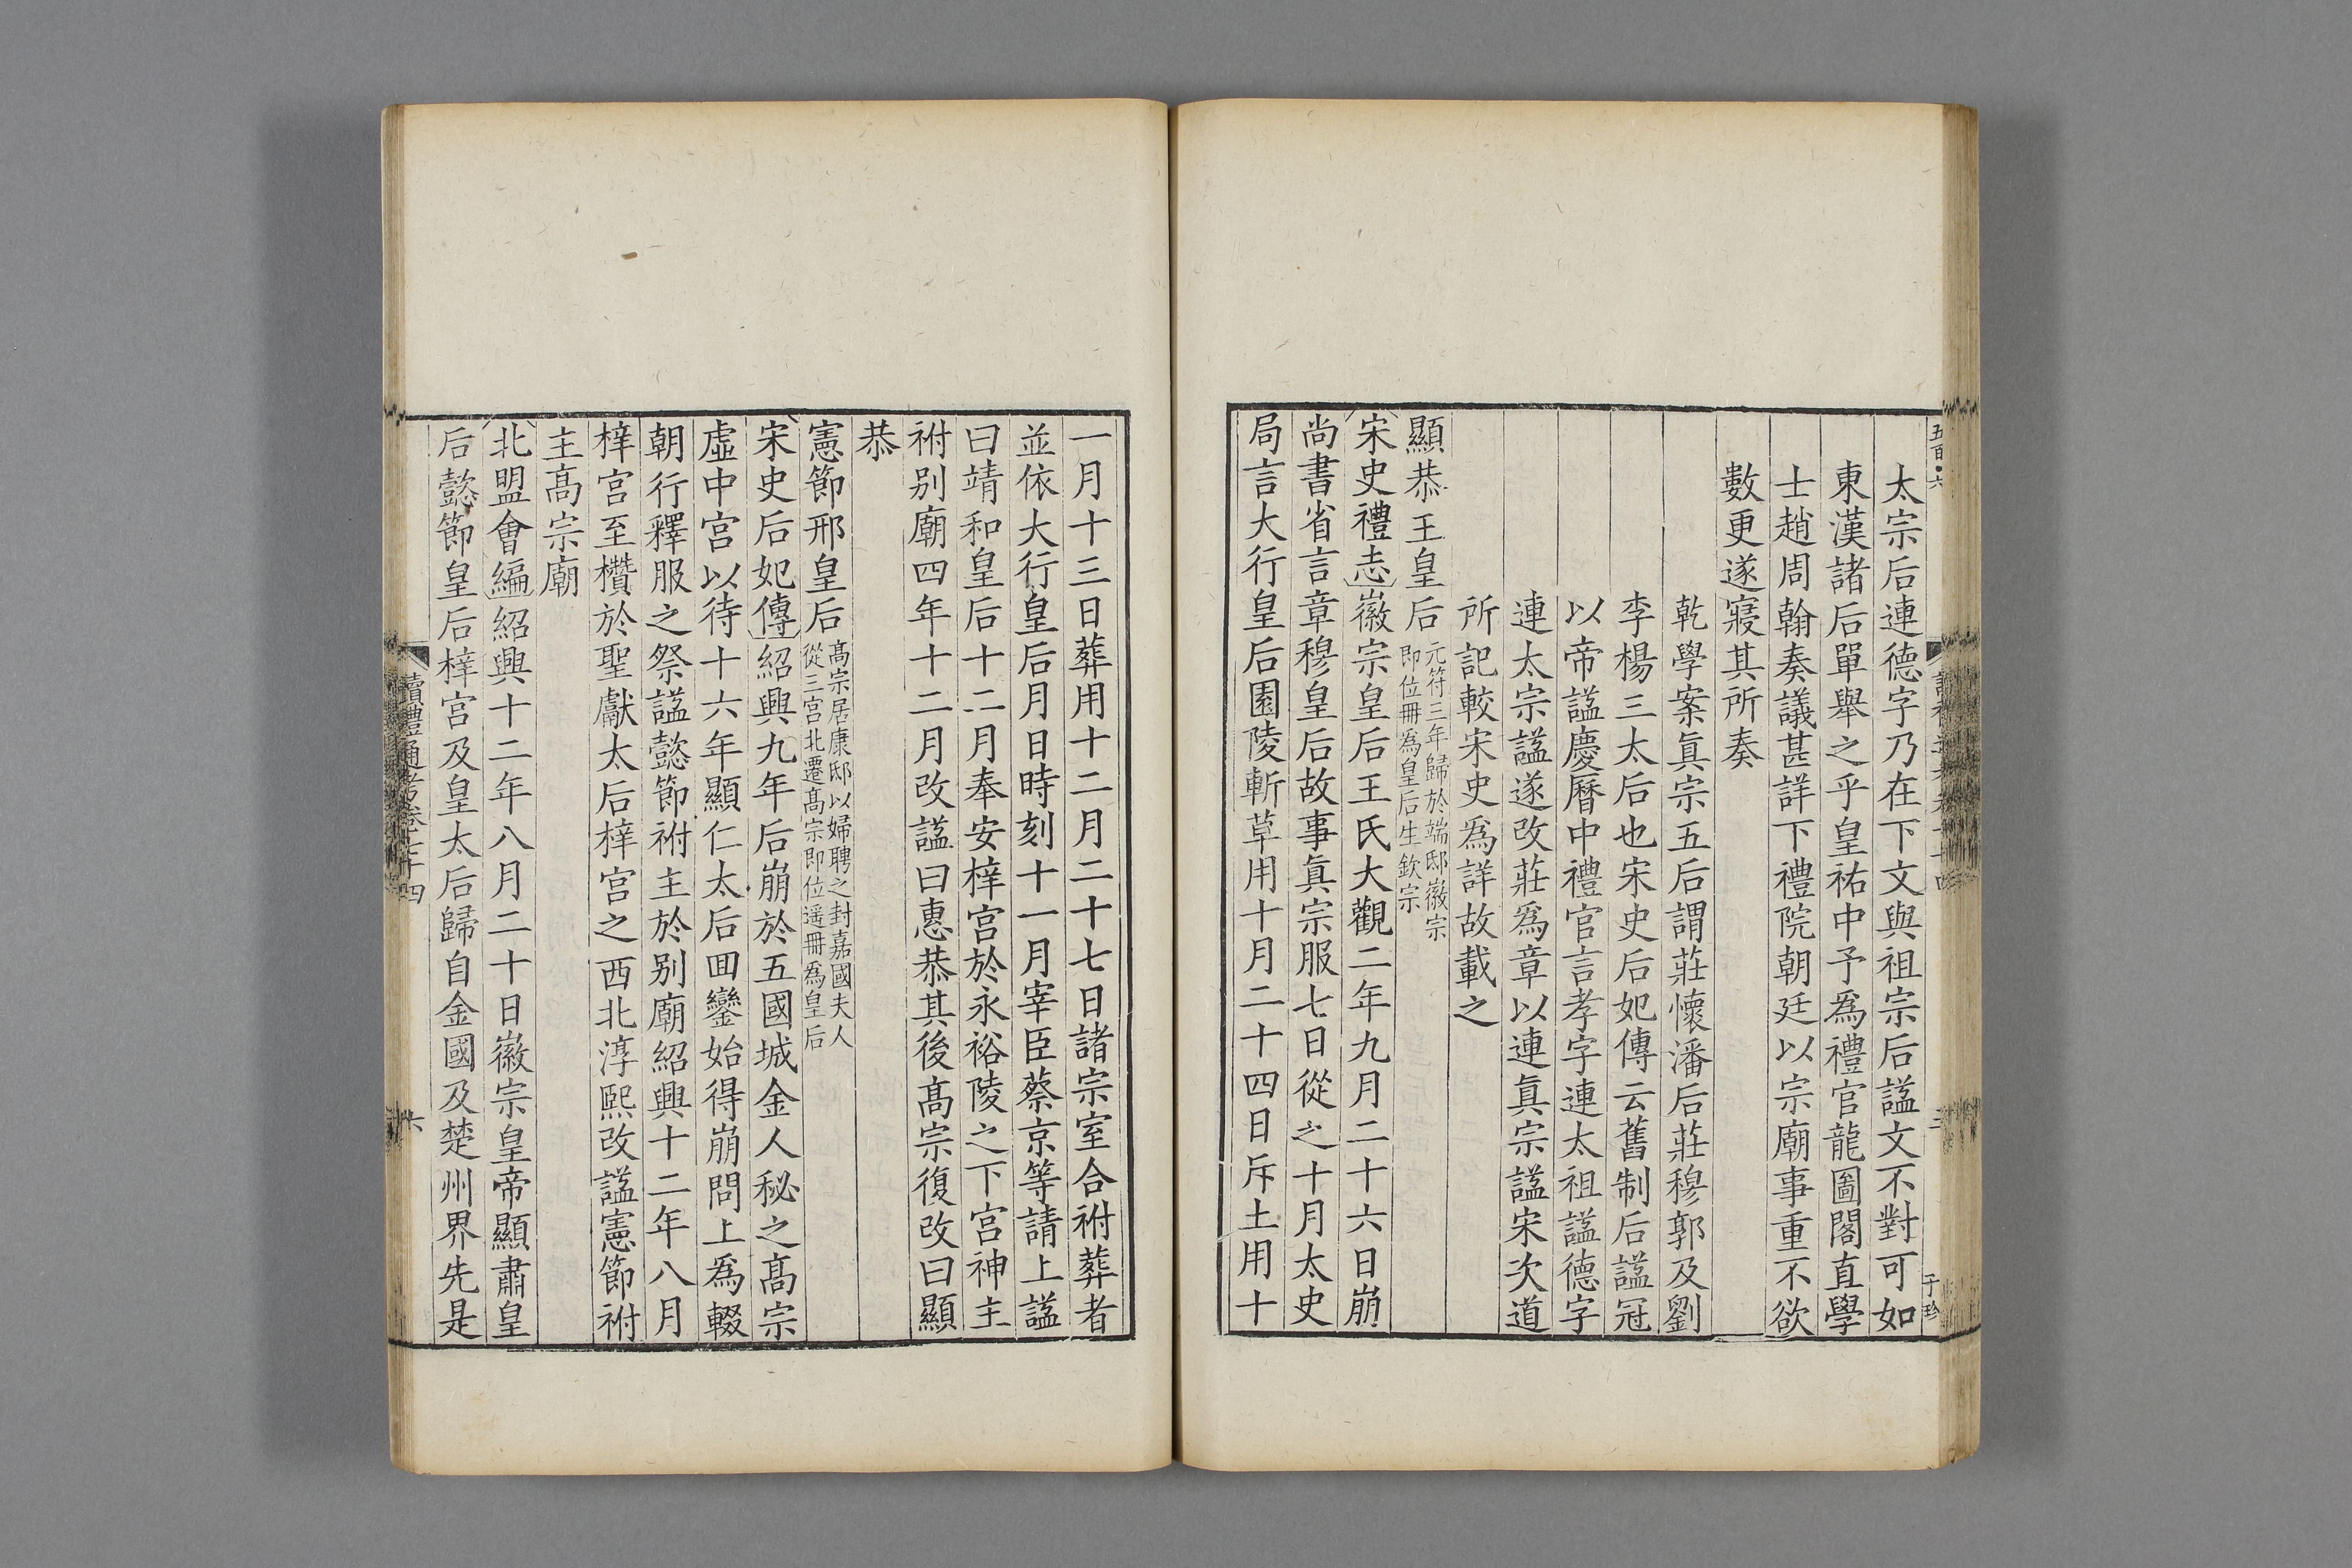 太宗后連德字乃在下文與祖宗后諡文不對可如
東漢諸后單舉之乎皇祐中予爲禮官龍圖閣直學
士趙周翰奏議甚詳下禮院朝廷以宗廟事重不欲
數更遂寢其所奏
乾學案眞宗五后謂莊懷潘后莊穆郭及劉
李楊三太后也宋史后妃傳云舊制后諡冠
以帝諡慶曆中禮官言孝字連太祖諡德字
連太宗諡遂改莊爲章以連眞宗諡宋次道
所記較宋史爲詳故載之
顯恭王皇后
元符三年歸於端邸徽宗
即位冊爲皇后生欽宗
宋史禮志徽宗皇后王氏大觀二年九月二十六日崩
尚書省言章穆皇后故事眞宗服七日從之十月太史
局言大行皇后園陵斬草用十月二十四日斥土用十
一月十三日葬用十二月二十七日諸宗室合祔葬者
並依大行皇后月日時刻十一月宰臣蔡京等請上諡
曰靖和皇后十二月奉安梓宮於永裕陵之下宮神主
祔别廟四年十二月改諡曰惠恭其後髙宗復改曰顯
恭
憲節邢皇后
髙宗居康邸以婦聘之封嘉國夫人
從三宫北遷髙宗即位遥冊爲皇后
宋史后妃傳紹興九年后崩於五國城金人秘之髙宗
虛中宮以待十六年顯仁太后囬鑾始得崩問上爲輟
朝行釋服之祭諡懿節祔主於别廟紹興十二年八月
梓宮至欑於聖獻太后梓宮之西北淳熙改諡憲節祔
主髙宗廟
北盟會編紹興十二年八月二十日徽宗皇帝顯肅皇
后懿節皇后梓宮及皇太后歸自金國及楚州界先是
讀禮通考卷七十四